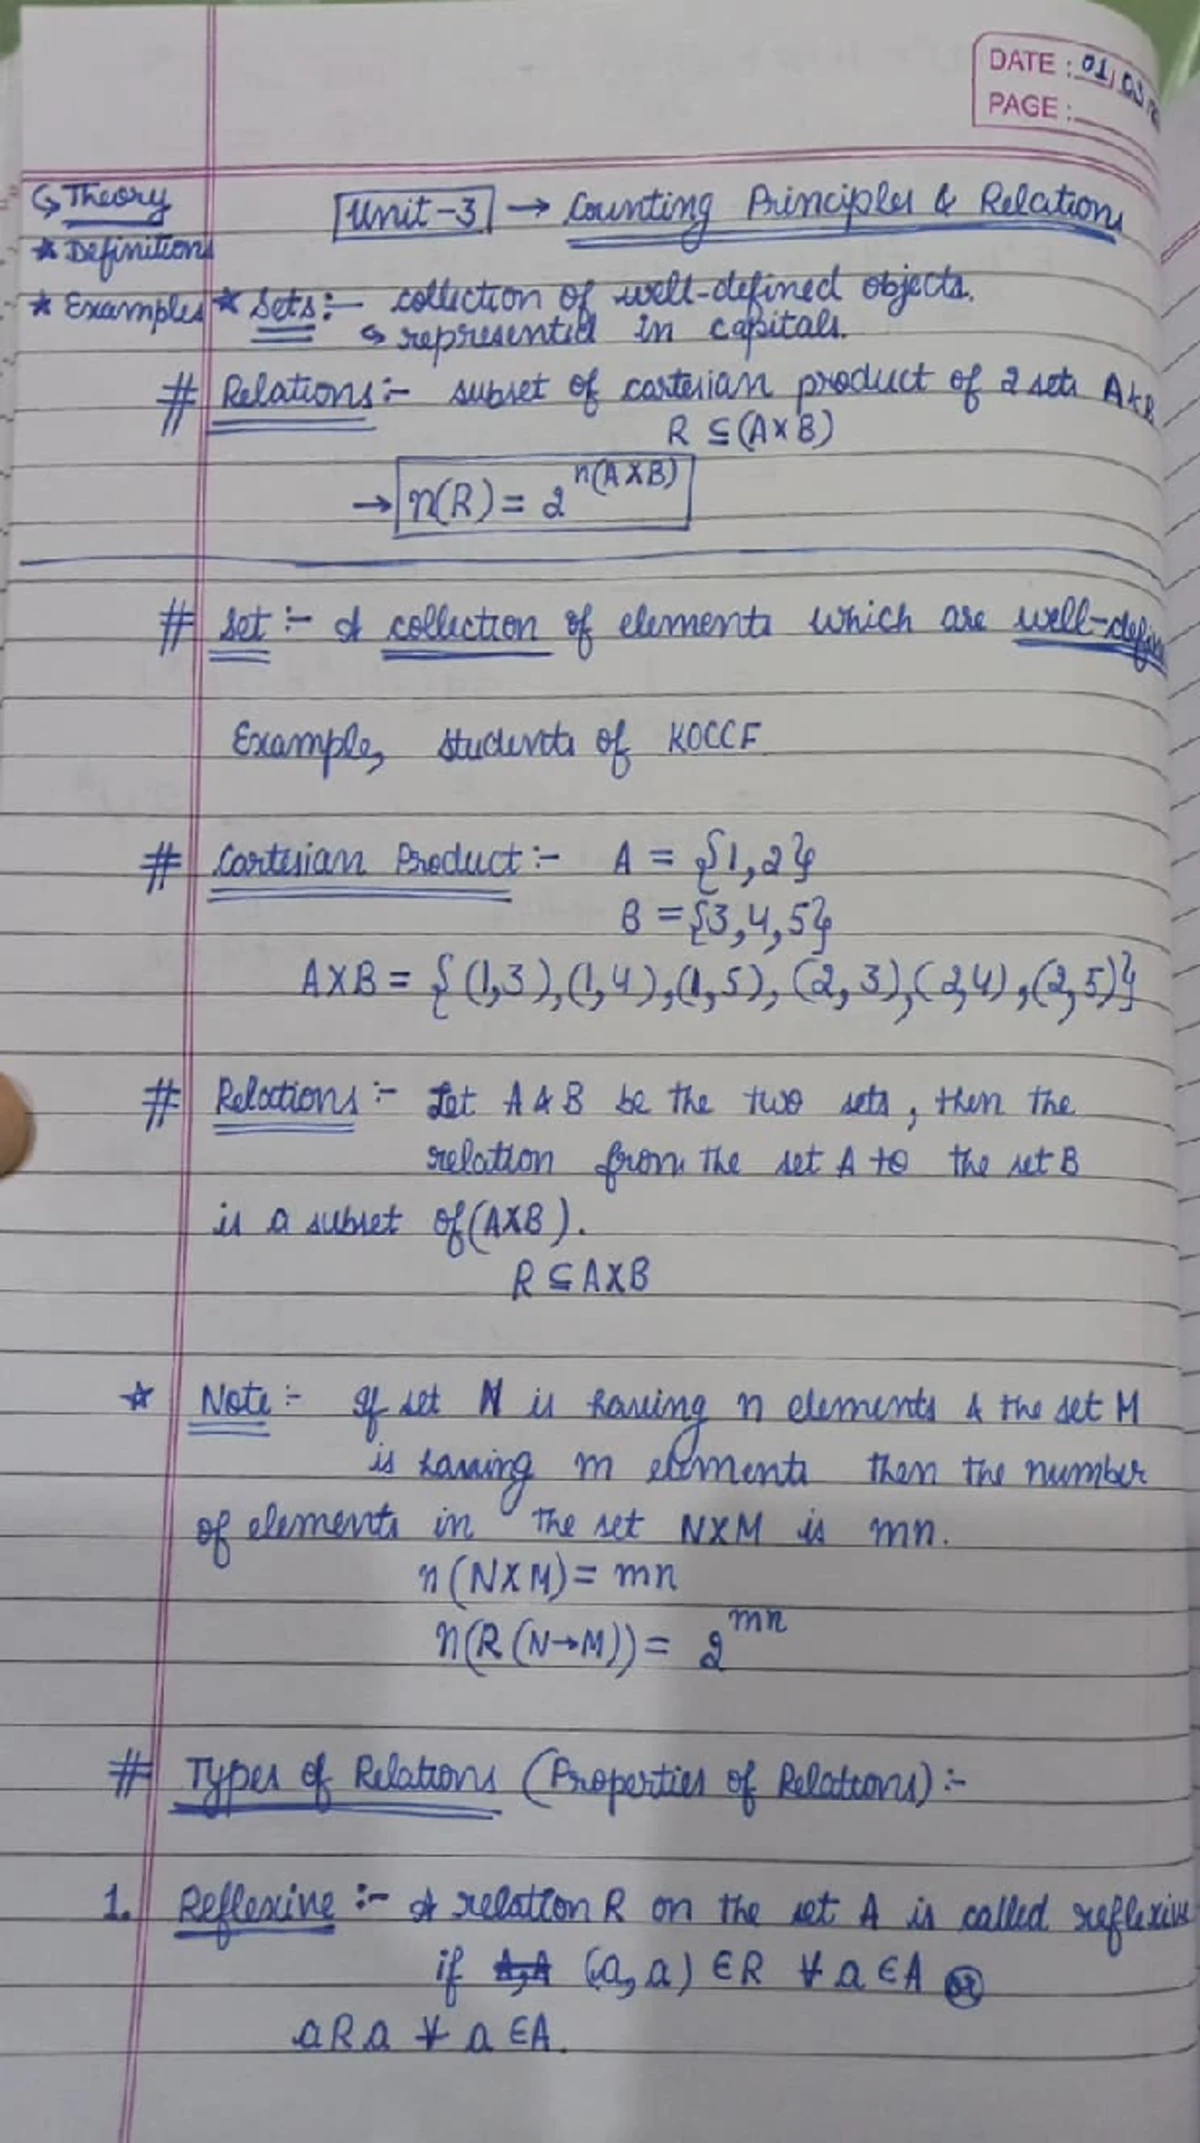 DATE : 01/03
PAGE :
↳ Theory
Unit-3 → Counting Principles & Relations
★ Definitions
★ Examples
★ Sets :- collection of well-defined objects.
↳ represented in capitals.
# Relations :- subset of cartesian product of 2 sets A & B
R ⊆ (A×B)
→ n(R) = 2^n(A×B)
# Set :- A collection of elements which are well-define
Example, students of KOCCF
# Cartesian Product :- A = {1,2}
B = {3,4,5}
A×B = {(1,3),(1,4),(1,5),(2,3),(2,4),(2,5)}
# Relations :- Let A & B be the two sets, then the
relation from the set A to the set B
is a subset of (A×B).
R ⊆ A×B
★ Note :- If set N is having n elements & the set M
is having m elements then the number
of elements in the set N×M is mn.
n(N×M) = mn
n(R(N→M)) = 2^mn
# Types of Relations (Properties of Relations) :-
1. Reflexive :- A relation R on the set A is called reflexive
if (a,a) ∈ R ∀ a ∈ A or
aRa ∀ a ∈ A.